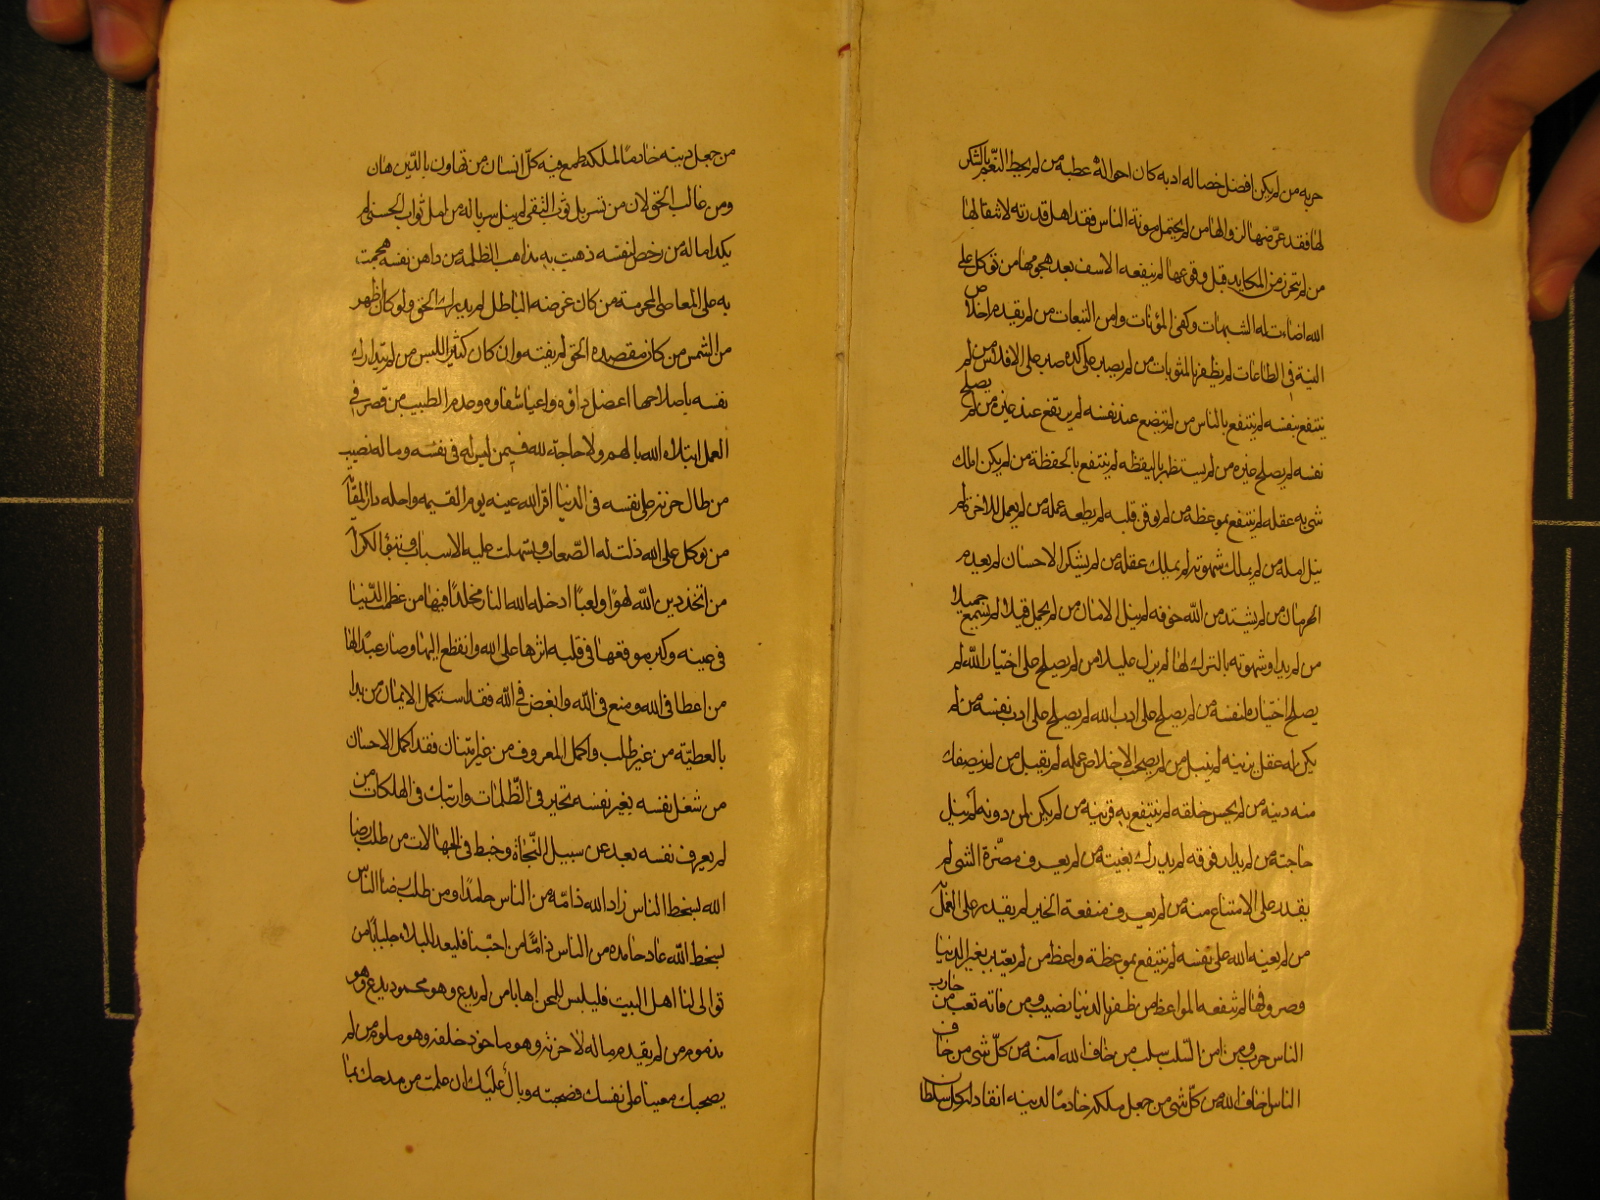 حربه من لم يكن افضل خصاله ادبه كان اهون احواله عطبه من لم يحط النعم بالشكر
لها فقد عرّضها لزوالها من لم يحتمل مونة الناس فقد اهل قدرته لانتقالها
من لم يتحرز من المكايد قبل وقوعها لم ينفعه الاسف بعد هجومها من توكل على
الله اضاءت له الشبهات وكفى المؤنات وامن التبعات من لم يقدم اخلاص
النية في الطاعات لم يظفر بالمثوبات من لم يصبر على كده صبر على الافلاس من لم
ينتفع بنفسه لم ينتفع بالناس من لم يتضع عند نفسه لم يرتفع عند غيره من لم يصلح
نفسه لم يصلح غيره من لم يستظهر باليقظه لم ينتفع بالحفظة من لم يكن املك
شئ به عقله لم ينتفع بموعظة من لم يوقن قلبه لم يطعه عمله من لم يعمل للاخرة لم
ينل امله من لم يملك شهوته لم يملك عقله من لم يشكر الاحسان لم يعده
الحرمان من لم يشتد من الله خوفه لم ينل الامان من لم يحمل قيلا لم يسمع جميلا
من لم يداو شهوته بالترك لها لم يزل عليلا من لم يصلح على اختيار الله لم
يصلح على اختياره لنفسه من لم يصلح على ادب الله لم يصلح على ادب نفسه من لم
يكن له عقل يزينه لم ينبل من لم يصحب الاخلاص عمله لم يقبل من لم ينصفك
منه دينه من لم يحسن خلقه لم ينتفع به قرينه من لم يكن لمن دونه لم ينل
حاجته من لم يدار فوقه لم يدرك بغيته من لم يعرف مضرّة الشئ لم
يقدر على الامتناع منه من لم يعرف منفعة الخير لم يقدر على العمل
من لم يعنه الله على نفسه لم ينتفع بموعظة واعظ من لم يعتبر بغير الدنيا
وصروفها لم تنفعه المواعظ من ظفر بالدنيا نصب ومن فاته تعب من حارب
الناس حرب ومن امن السلب سلب من خاف الله آمنه من كلّ شئ من خاف
الناس اخافه الله من كلّ شئ من جعل ملكه خادمًا لدينه انقاد له كل سلطان
من جعل دينه خادمًا لملكه طمع فيه كلّ انسان من تهاون بالدّين هان
ومن غالب الحق لان من تسربل ثوب التقى لم يبل سرباله من امل ثواب الحسنى لم
يكد اماله من رخص لنفسه ذهبت به مذاهب الظلمة من داهن نفسه هجمت
به على المعاصي المحرمة من كان غرضه الباطل لم يدرك الحق ولو كان اظهر
من الشمس من كان مقصده الحق لم يفته وان كان كثير اللبس من لم يتدارك
نفسه باصلاحها اعضل داؤه واعيا شفاوه وعدم الطبيب من قصر في
العمل ابتلاه الله بالهم ولا حاجة لله فيمن ليس له في نفسه وماله نصيب
من طال حزنه على نفسه في الدنيا اقر الله عينه يوم القيمه واحله دار المقامة
من توكل على الله ذلت له الصّعاب وتسهلت عليه الاسباب وتبوّأ الكرامة
من اتخذ دين اللّه لهوًا ولعبًا ادخله الله النار مخلدًا فيها من عظمت الدّنيا
في عينه وكبر موقعها في قلبه اثرها على الله وانقطع اليها وصار عبدًا لها
من اعطا في الله ومنع في اللّه وابغض في اللّه فقد استكمل الايمان من بدا
بالعطيّة من غير طلب واكمل المعروف من غير امتنان فقد اكمل الاحسان
من شغل نفسه بغير نفسه تحير في الظّلمات وارتبك في الهلكات من
لم يعرف نفسه بعد عن سبيل النّجاة وخبط في الجهالات من طلب رضا
الله بسخط الناس زاد الله ذامّه من الناس حامدًا ومن طلب رضا الناس
بسخط اللّه عاد حامده من الناس ذامًّا من احبّنا فليعد للبلاء جلبابًا من
توالى لنا اهل البيت فليلبس للمحن اهابا من لم يدع وهو محمود يدع وهو
مذموم من لم يقدم ماله لآخرته وهو ماجور خلفه وهو ملوم من لم
يصحبك معينا على نفسك فصحبته وبال عليك ان علمت من مدحك بما